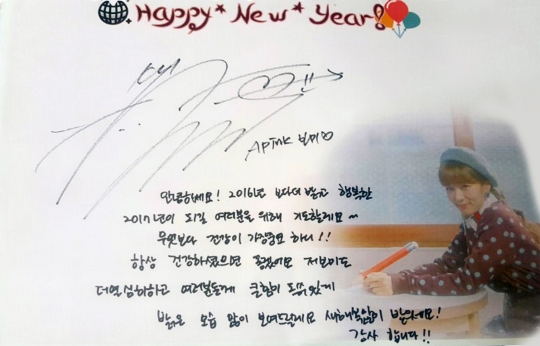 Happy* New* Year!
Apink 보미♡
안녕하세요! 2016년 보다 더 밝고 행복한
2017년이 되길 여러분을 위해 기도할게요~
무엇보다 건강이 가장중요 하니!!
항상 건강하셨으면 좋겠어요 저보미도
더열심히하고 여러분들께 큰힘이 될수있게
밝은 모습 많이 보여드릴게요 새해복많이 받으세요!
감사 합니다!!